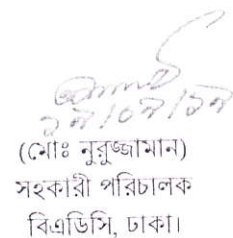 (মোঃ নুরুজ্জামান)
সহকারী পরিচালক
বিএডিসি, ঢাকা।